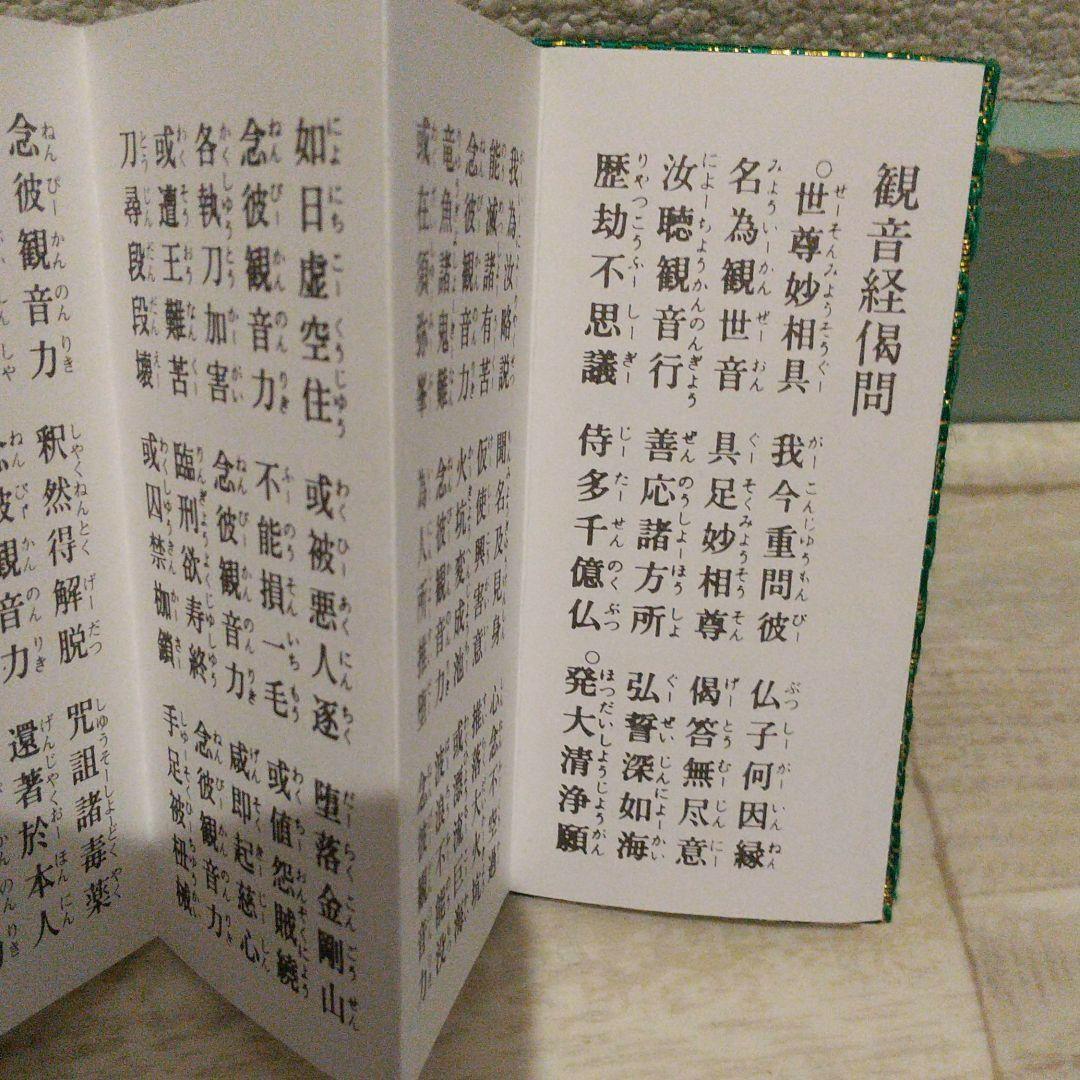 観音経偈問
世尊妙相具 我今重問彼 仏子何因縁
名為観世音 具足妙相尊 偈答無尽意
汝聴観音行 善応諸方所 弘誓深如海
歴劫不思議 侍多千億仏 発大清浄願
我為汝略説 聞名及見身 心念不空過
能滅諸有苦 仮使興害意 推落大火坑
念彼観音力 火坑変成池 或漂流巨海
竜魚諸鬼難 念彼観音力 波浪不能没
或在須弥峯 為人所推堕 念彼観音力
如日虚空住 或被悪人逐 堕落金剛山
念彼観音力 不能損一毛 或値怨賊繞
各執刀加害 念彼観音力 咸即起慈心
或遭王難苦 臨刑欲寿終 念彼観音力
刀尋段段壊 或囚禁枷鎖 手足被杻械
念彼観音力 釈然得解脱 呪詛諸毒薬
念彼観音力 還著於本人